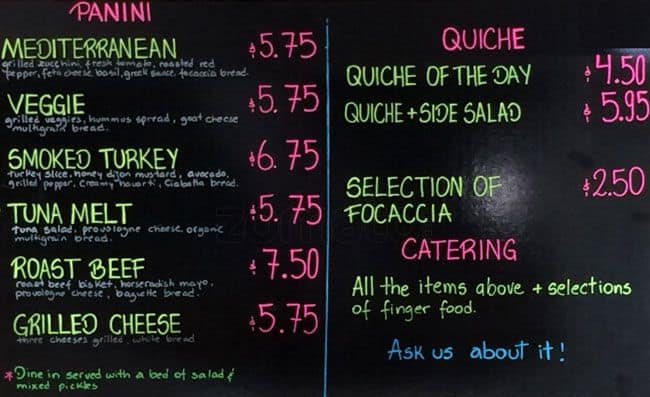 PANINI
MEDITERRANEAN $5.75
grilled zucchini, fresh tomato, roasted red
pepper, feta cheese basil, greek sauce, focaccia bread.
VEGGIE $5.75
grilled veggies, hummus spread, goat cheese
multigrain bread.
SMOKED TURKEY $6.75
turkey slice, honey dijon mustard, avocado,
grilled pepper, creamy havarti, ciabatta bread.
TUNA MELT $5.75
tuna salad, provologne cheese, organic
multigrain bread.
ROAST BEEF $7.50
roast beef bisket, horseradish mayo,
provologne cheese, baguette bread.
GRILLED CHEESE $5.75
three cheeses grilled, white bread
*Dine in served with a bed of salad &
mixed pickles
QUICHE
QUICHE OF THE DAY $4.50
QUICHE + SIDE SALAD $5.95
SELECTION OF $2.50
FOCACCIA
CATERING
All the items above + selections
of finger food.
Ask us about it!